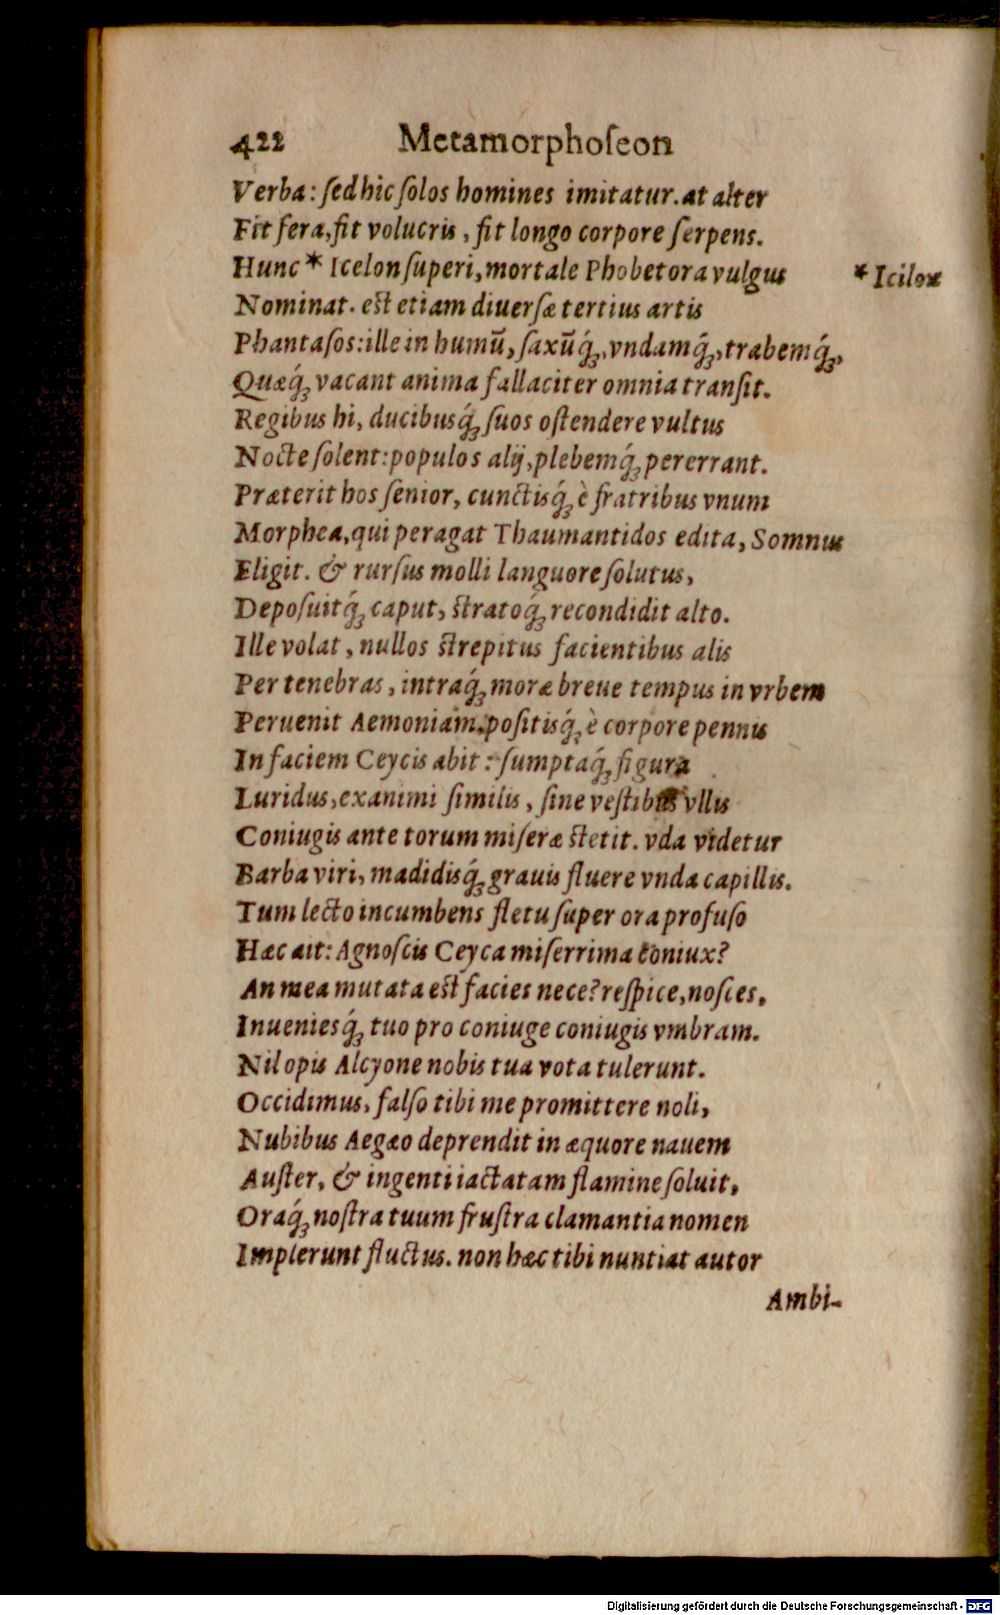 422 Metamorphoſeon
Verba: ſed hic ſolos homines imitatur. at alter
Fit fera, fit volucris, fit longo corpore ſerpens.
Hunc * Icelon ſuperi, mortale Phobetora vulgus
* Icilon
Nominat. eſt etiam diuerſæ tertius artis
Phantaſos: ille in humū, ſaxūq́ꝫ, vndamq́ꝫ, trabemq́ꝫ,
Quæq́ꝫ vacant anima fallaciter omnia tranſit.
Regibus hi, ducibusq́ꝫ ſuos oſtendere vultus
Nocte ſolent: populos alij, plebemq́ꝫ pererrant.
Præterit hos ſenior, cunctisq́ꝫ è fratribus vnum
Morphea, qui peragat Thaumantidos edita, Somnus
Eligit. & rurſus molli languore ſolutus,
Depoſuitq́ꝫ caput, ſtratoq́ꝫ recondidit alto.
Ille volat, nullos ſtrepitus facientibus alis
Per tenebras, intraq́ꝫ moræ breue tempus in vrbem
Peruenit Aemoniam. poſitisq́ꝫ è corpore pennis
In faciem Ceycis abit: ſumptaq́ꝫ figura
Luridus, exanimi ſimilis, ſine veſtibus vllis
Coniugis ante torum miſeræ ſtetit. vda videtur
Barba viri, madidisq́ꝫ grauis fluere vnda capillis.
Tum lecto incumbens fletu ſuper ora profuſo
Hæc ait: Agnoſcis Ceyca miſerrima coniux?
An mea mutata eſt facies nece? reſpice, noſces,
Inueniesq́ꝫ tuo pro coniuge coniugis vmbram.
Nil opis Alcyone nobis tua vota tulerunt.
Occidimus, falſo tibi me promittere noli,
Nubibus Aegæo deprendit in æquore nauem
Auſter, & ingenti iactatam flamine ſoluit,
Oraq́ꝫ noſtra tuum fruſtra clamantia nomen
Implerunt fluctus. non hæc tibi nuntiat autor
Ambi-
Digitalisierung gefördert durch die Deutsche Forschungsgemeinschaft - DFG